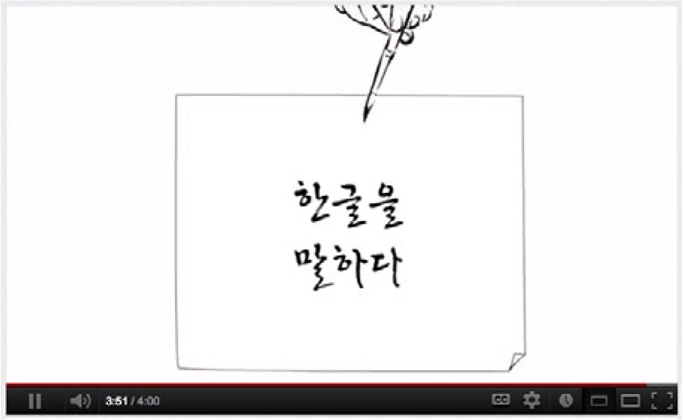 한글을
말하다
3:51 / 4:00
CC